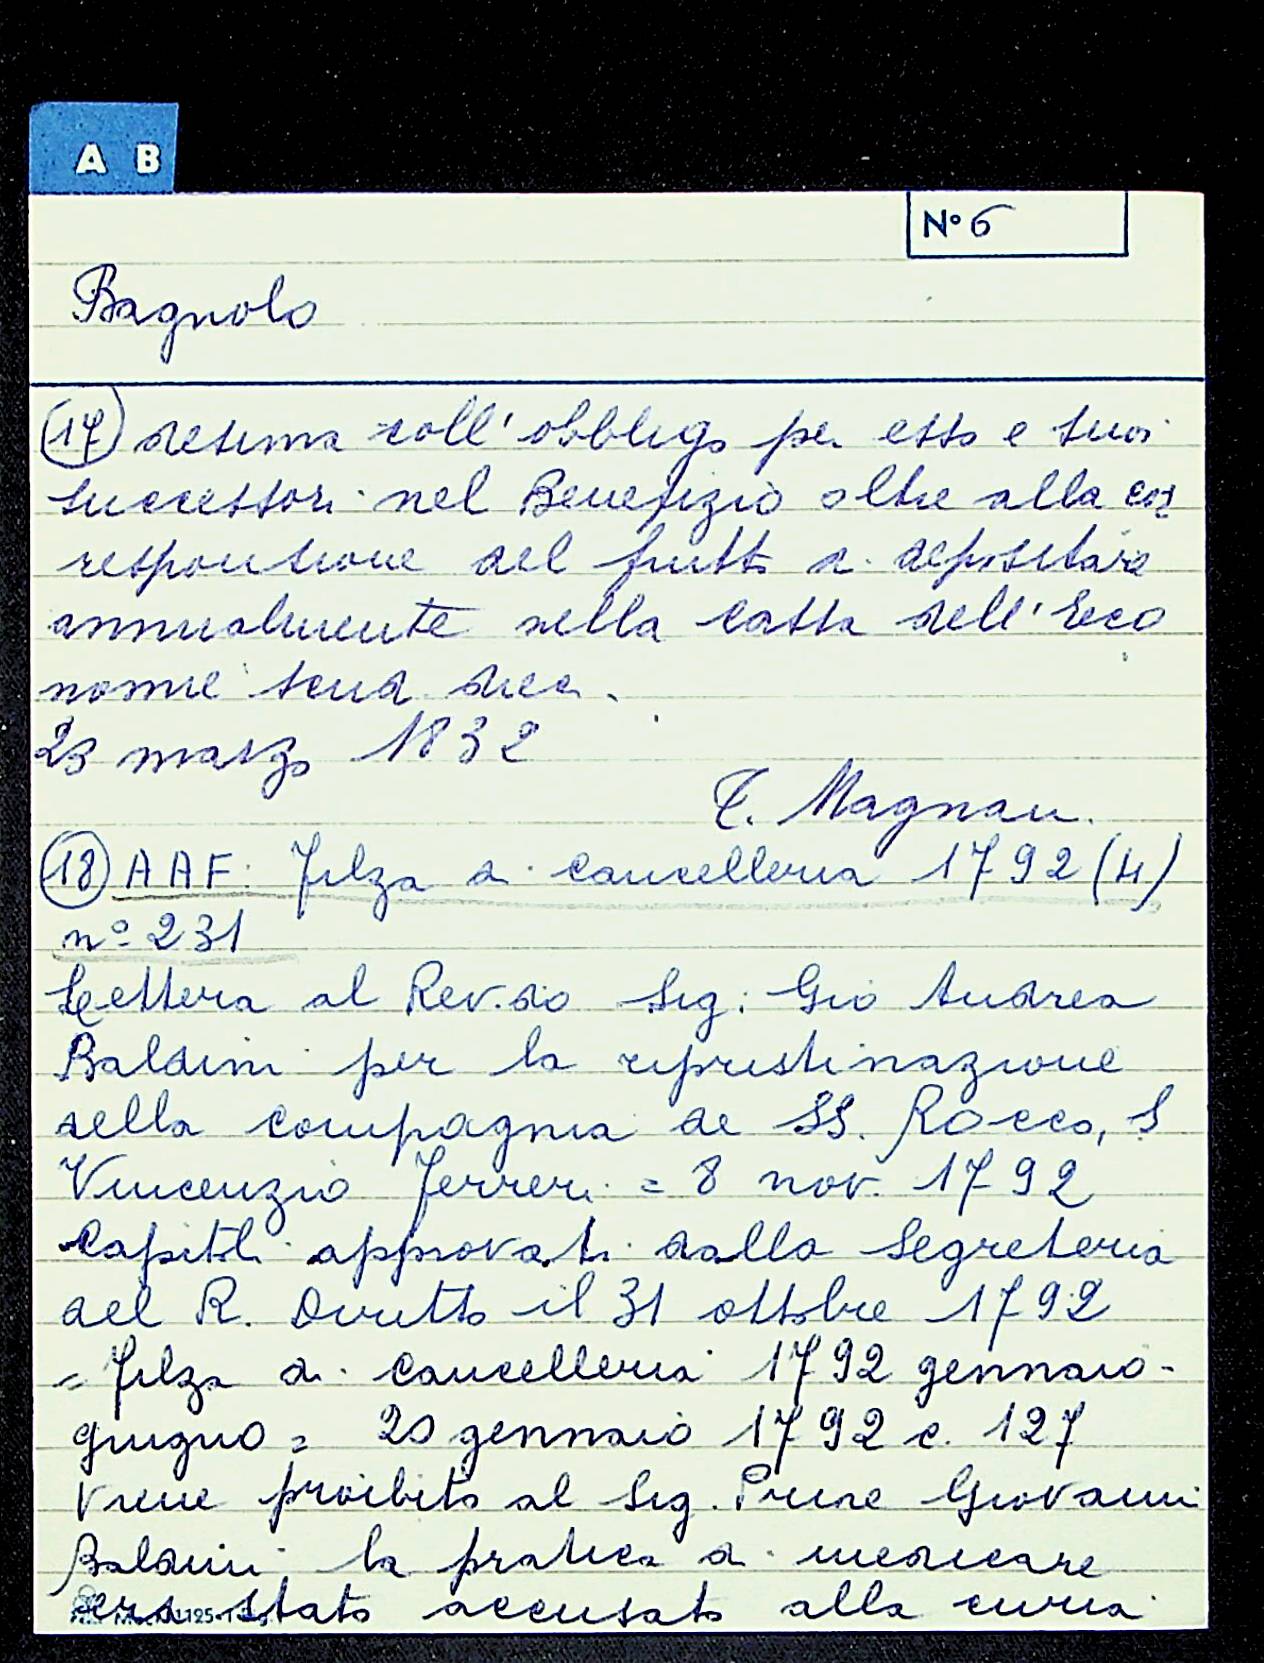 A B
N° 6
Bagnolo
(17) desima coll' obbligo per esso e suoi
successori nel Benefizio oltre alla cor
responsione del frutto di depositare
annualmente nella cassa dell' Eco
nomie scudi dieci.
23 marzo 1832
T. Magnani
(18) AAF: Filza di cancelleria 1792 (4)
n° 231
Lettera al Rev.do Sig: Gio Andrea
Baldini per la ripristinazione
della compagnia de SS. Rocco, S
Vincenzio Ferreri = 8 nov. 1792
Capitoli approvati dalla Segreteria
del R. Diritto il 31 ottobre 1792
= Filza di cancelleria 1792 gennaio-
giugno = 20 gennaio 1792 c. 127
Viene proibito al Sig. Priore Giovanni
Baldini la pratica di medicare
era stato accusato alla curia